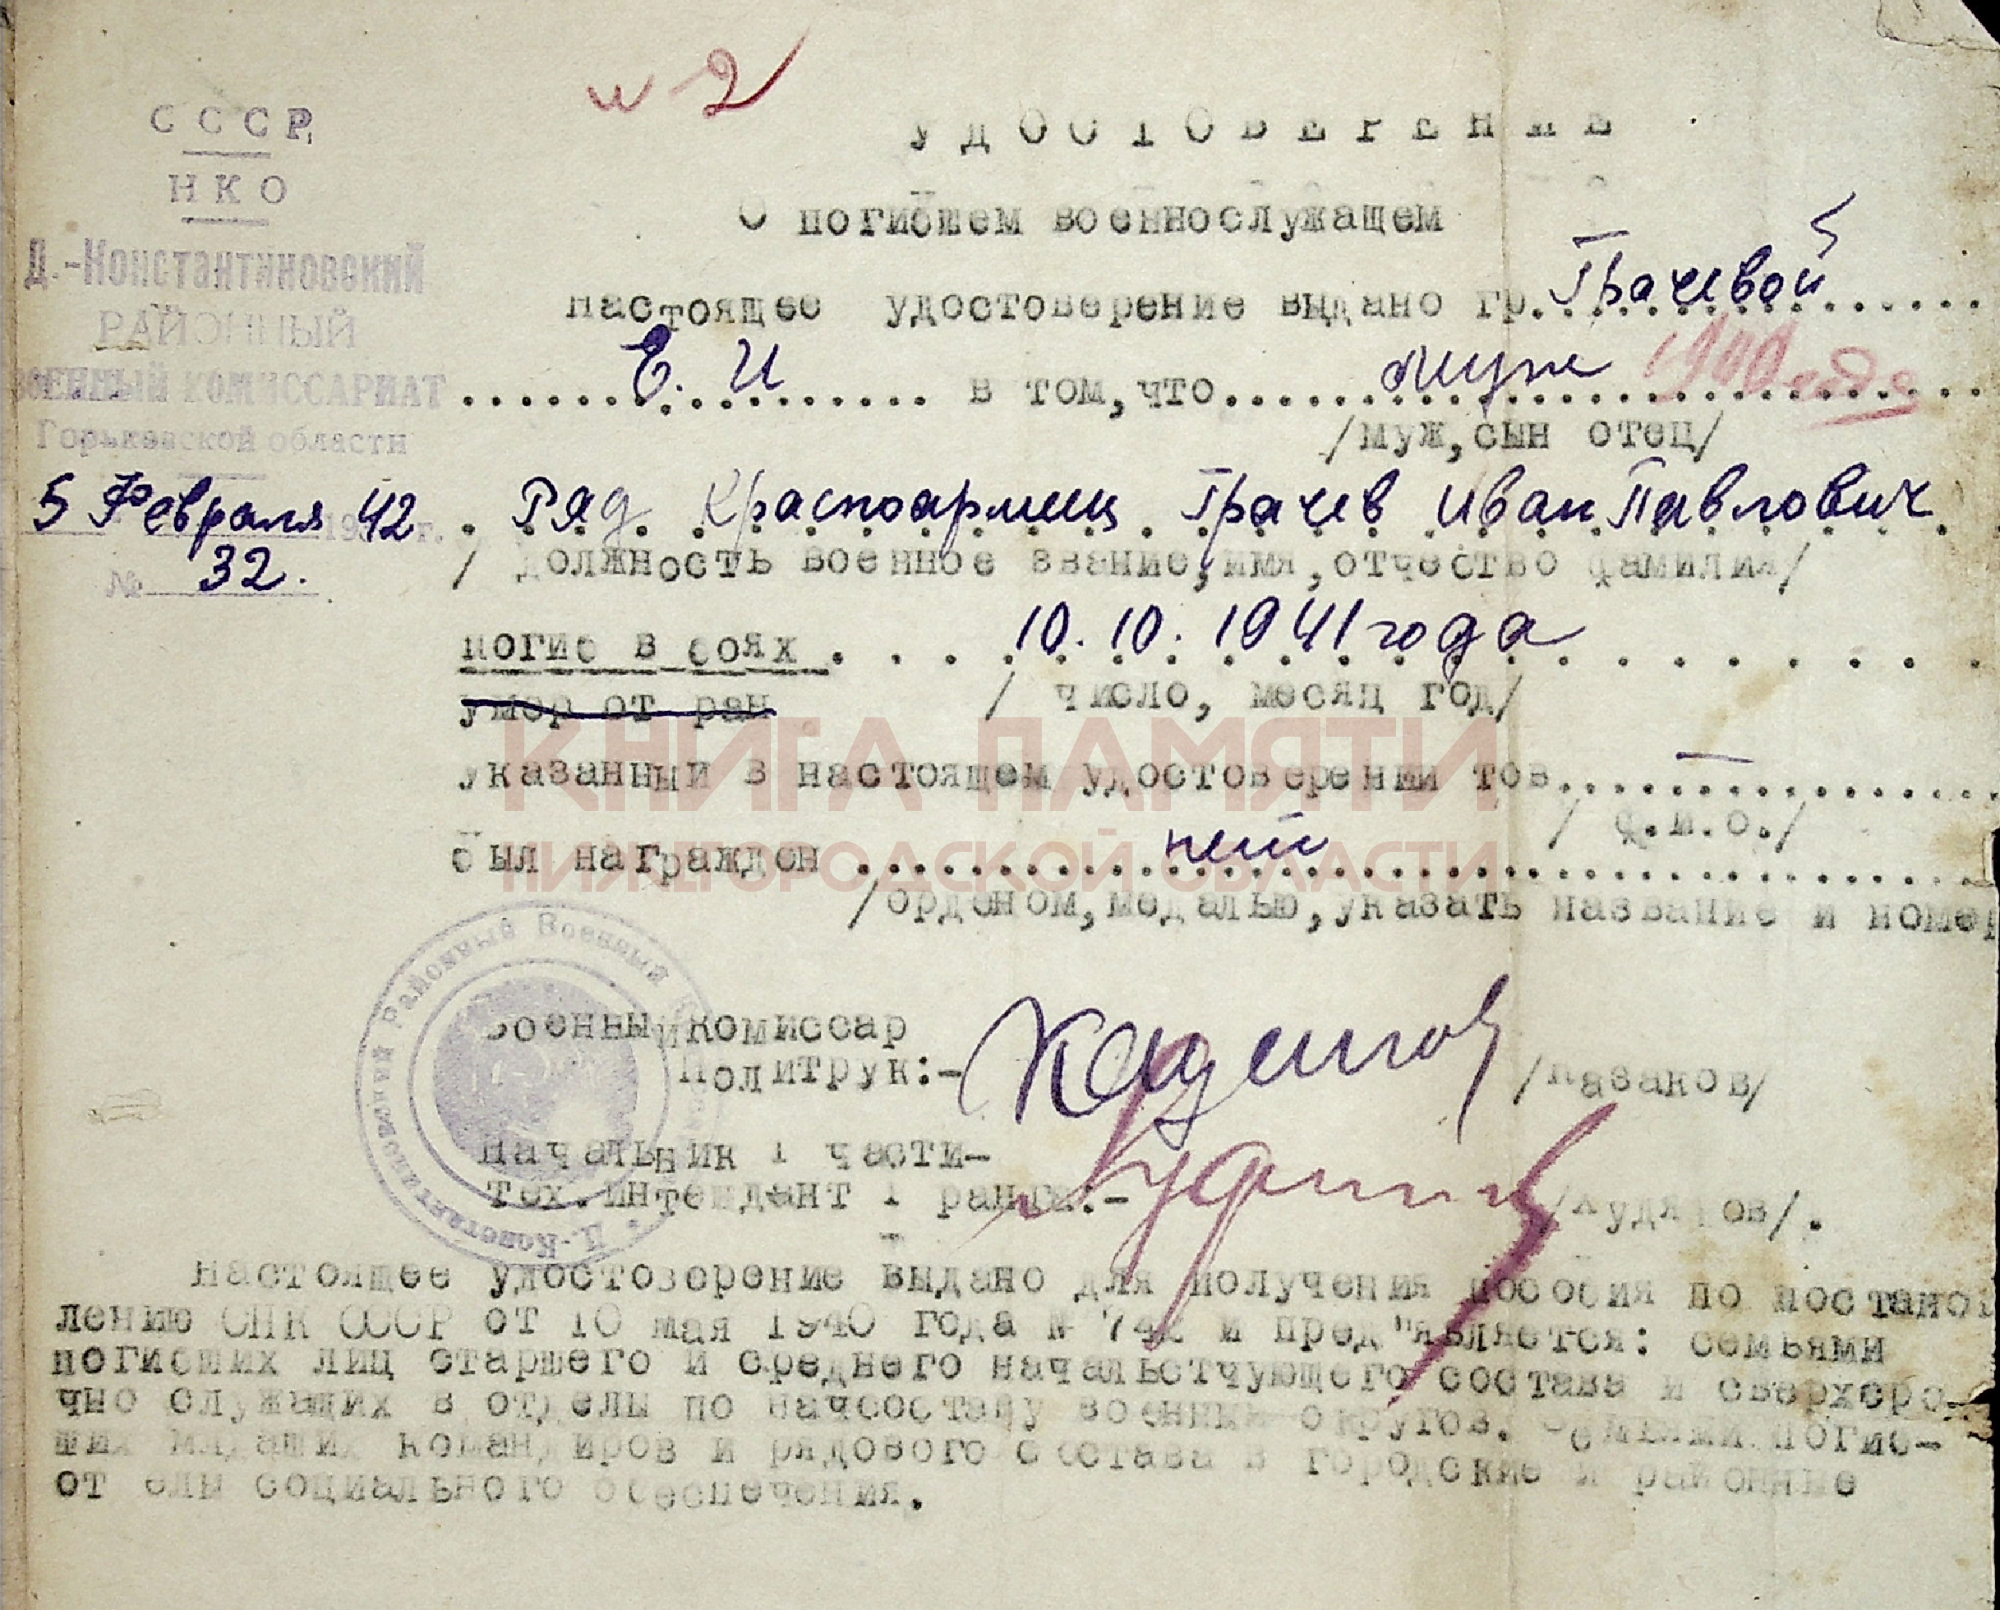 и 2
СССР
НКО
Д.-Константиновский
РАЙОННЫЙ
ВОЕННЫЙ КОМИССАРИАТ
Горьковской области
5 Февраля 1942 г.
№ 32.
УДОСТОВЕРЕНИЕ
О погибшем военнослужащем
Настоящее удостоверение выдано гр. Грачевой
Е. И в том, что муж 1900 года
/муж, сын отец/
Ряд. Красноармеец Грачев Иван Павлович
/ должность военное звание, имя, отчество фамилия/
погиб в боях 10.10.1941 года
умер от ран / число, месяц год/
указанный в настоящем удостоверении тов. —
/ ф.и.о./
был награжден нет
/орденом, медалью, указать название и номер
КНИГА ПАМЯТИ
НИЖЕГОРОДСКОЙ ОБЛАСТИ
Военный комиссар
Политрук:- /Казаков/
Начальник 1 части-
Тех.интендант 1 ранга:- /Худяков/.
Д.-Константиновский Районный Военный
Настоящее удостоверение выдано для получения пособия по постанов
лению СНК СССР от 10 мая 1940 года № 742 и пред"является: семьями
погибших лиц старшего и среднего начальстчующего состава и сверхсро-
чно служащих в отделы по начсоставу военных округов. Семьями погиб-
ших младших командиров и рядового состава в городские и районные
отделы социального обеспечения.